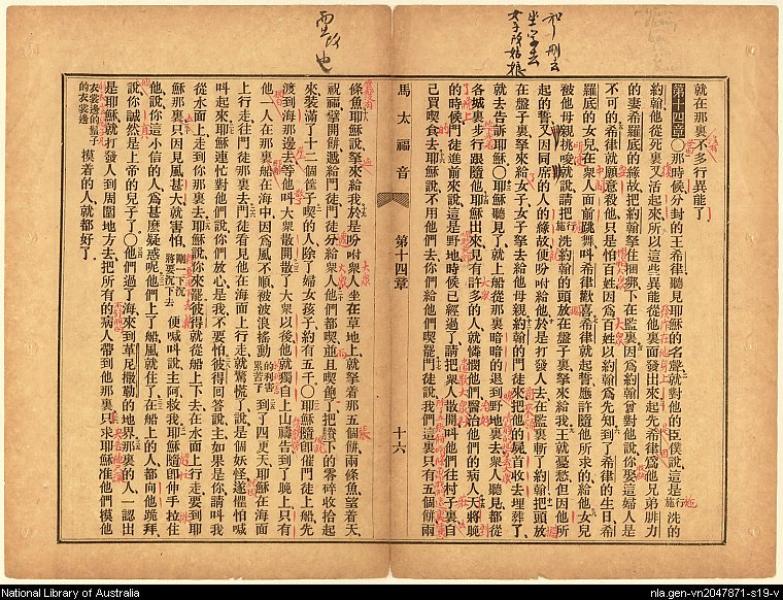 就在那裏不多行異能了
第十四章〇那時候分封的王希律聽見耶穌的名聲就對他的臣僕說這是施行洗的
約翰他從死裏又活起來所以這些異能從他裏面發出來起先希律爲他兄弟腓力
的妻希羅底的緣故把約翰拏住捆綁下在監裏因爲約翰曾對他說你娶這婦人是
不可的希律就願意殺他只是怕百姓因爲百姓以約翰爲先知到了希律的生日希
羅底的女兒在衆人面前跳舞叫希律歡喜希律就起誓應許隨他所求的給他女兒
被他母親挑唆就說請把施行洗約翰的頭放在盤子裏拏來給我王就憂愁但因他所
起的誓又因同席的人的緣故便吩咐給他於是打發人去在監裏斬了約翰把頭放
在盤子裏拏來給女子女子拏去給他母親約翰的門徒來把他的屍首收去埋葬了
就去告訴耶穌〇耶穌聽見了就上船從那裏暗暗的退到野地裏去衆人聽見都從
各城裏步行跟隨他耶穌出來見有許多的人就憐憫他們醫治他們的病人天將晚
的時候門徒進前來說這是野地時候已經過了請把衆人散開叫他們往村子裏自
己買喫食去耶穌說不用他們去你們給他們喫罷門徒說我們這裏只有五個餅兩
馬太福音 第十四章 十六
條魚耶穌說拏來給我於是吩咐衆人坐在草地上就拏着那五個餅兩條魚望着天
祝福擘開餅遞給門徒門徒分給衆人他們都喫並且喫飽了把賸下的零碎收拾起
來裝滿了十二個筐子喫的人除了婦女孩子約有五千〇耶穌隨卽催門徒上船先
渡到海那邊去等他叫大衆散開散了大衆以後他就獨自上山禱告到了晚上只有
他一人在那裏船在海中因爲風不順被波浪搖動的利害累苦了到了四更天耶穌在海面
上行走往門徒那裏去門徒看見他在海面上行走就驚慌了說是個妖怪遂懼怕喊
叫起來耶穌連忙對他們說你們放心是我不要怕彼得回答說主如果是你請叫我
從水面上走到你那裏去耶穌說你來罷彼得就從船上下去在水面上行走要到耶
穌那裏只因見風甚大就害怕剛一下沉將要沉下去便喊叫說主阿救我耶穌隨卽伸手拉住
他說你這小信的人爲甚麼疑惑呢他們上了船風就住了在船上的人都向他跪拜
說你誠然是上帝的兒子了〇他們過了海來到革尼撒勒的地界那裏的人一認出
是耶穌就打發人到周圍地方去把所有的病人帶到他那裏只求耶穌准他們摸他
的衣裳邊衣裳邊的繸子摸着的人就都好了
National Library of Australia
nla.gen-vn2047871-s19-v